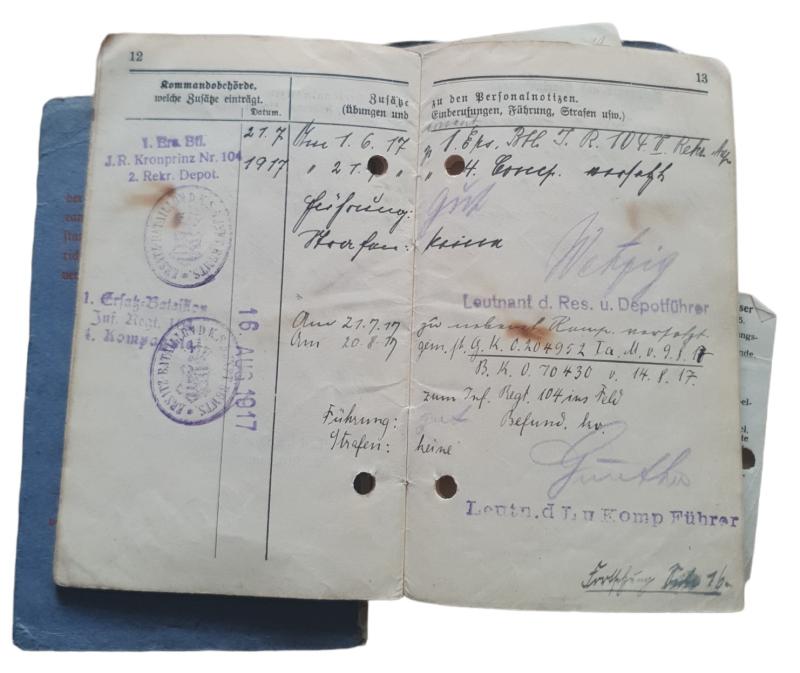 12
Kommandobehörde,
welche Zusätze einträgt.
Datum.
Zusätze
(Übungen und
1. Ers. Btl.
J.R. Kronprinz Nr. 104
2. Rekr. Depot.
21.7
1917
Am 1.6.17
" 21.7 "
Führung:
Strafen:
ERSATZ BATAILLON D.K.S.
1. Ersatz-Bataillon
Inf. Regt. 104
4. Kompanie
16 AUG 1917
Am 21.7.17
Am 20.8.17
Führung:
Strafen:
13
zu den Personalnotizen.
Einberufungen, Führung, Strafen usw.)
z. 1. Ers. Btl. I. R. 104 II. Rekr.
" 4. Comp. versetzt
gut
keine
Leutnant d. Res. u. Depotführer
zu Komp. versetzt
gem. G.K.O. 204952 Ia. M. v. 9.8.17
B.K.O. 70430 v. 14.8.17.
zum Inf. Regt. 104 ins Feld
gut Befund. kv.
keine
Günther
Leutn. d L u Komp Führer
Fortsetzung Seite 16